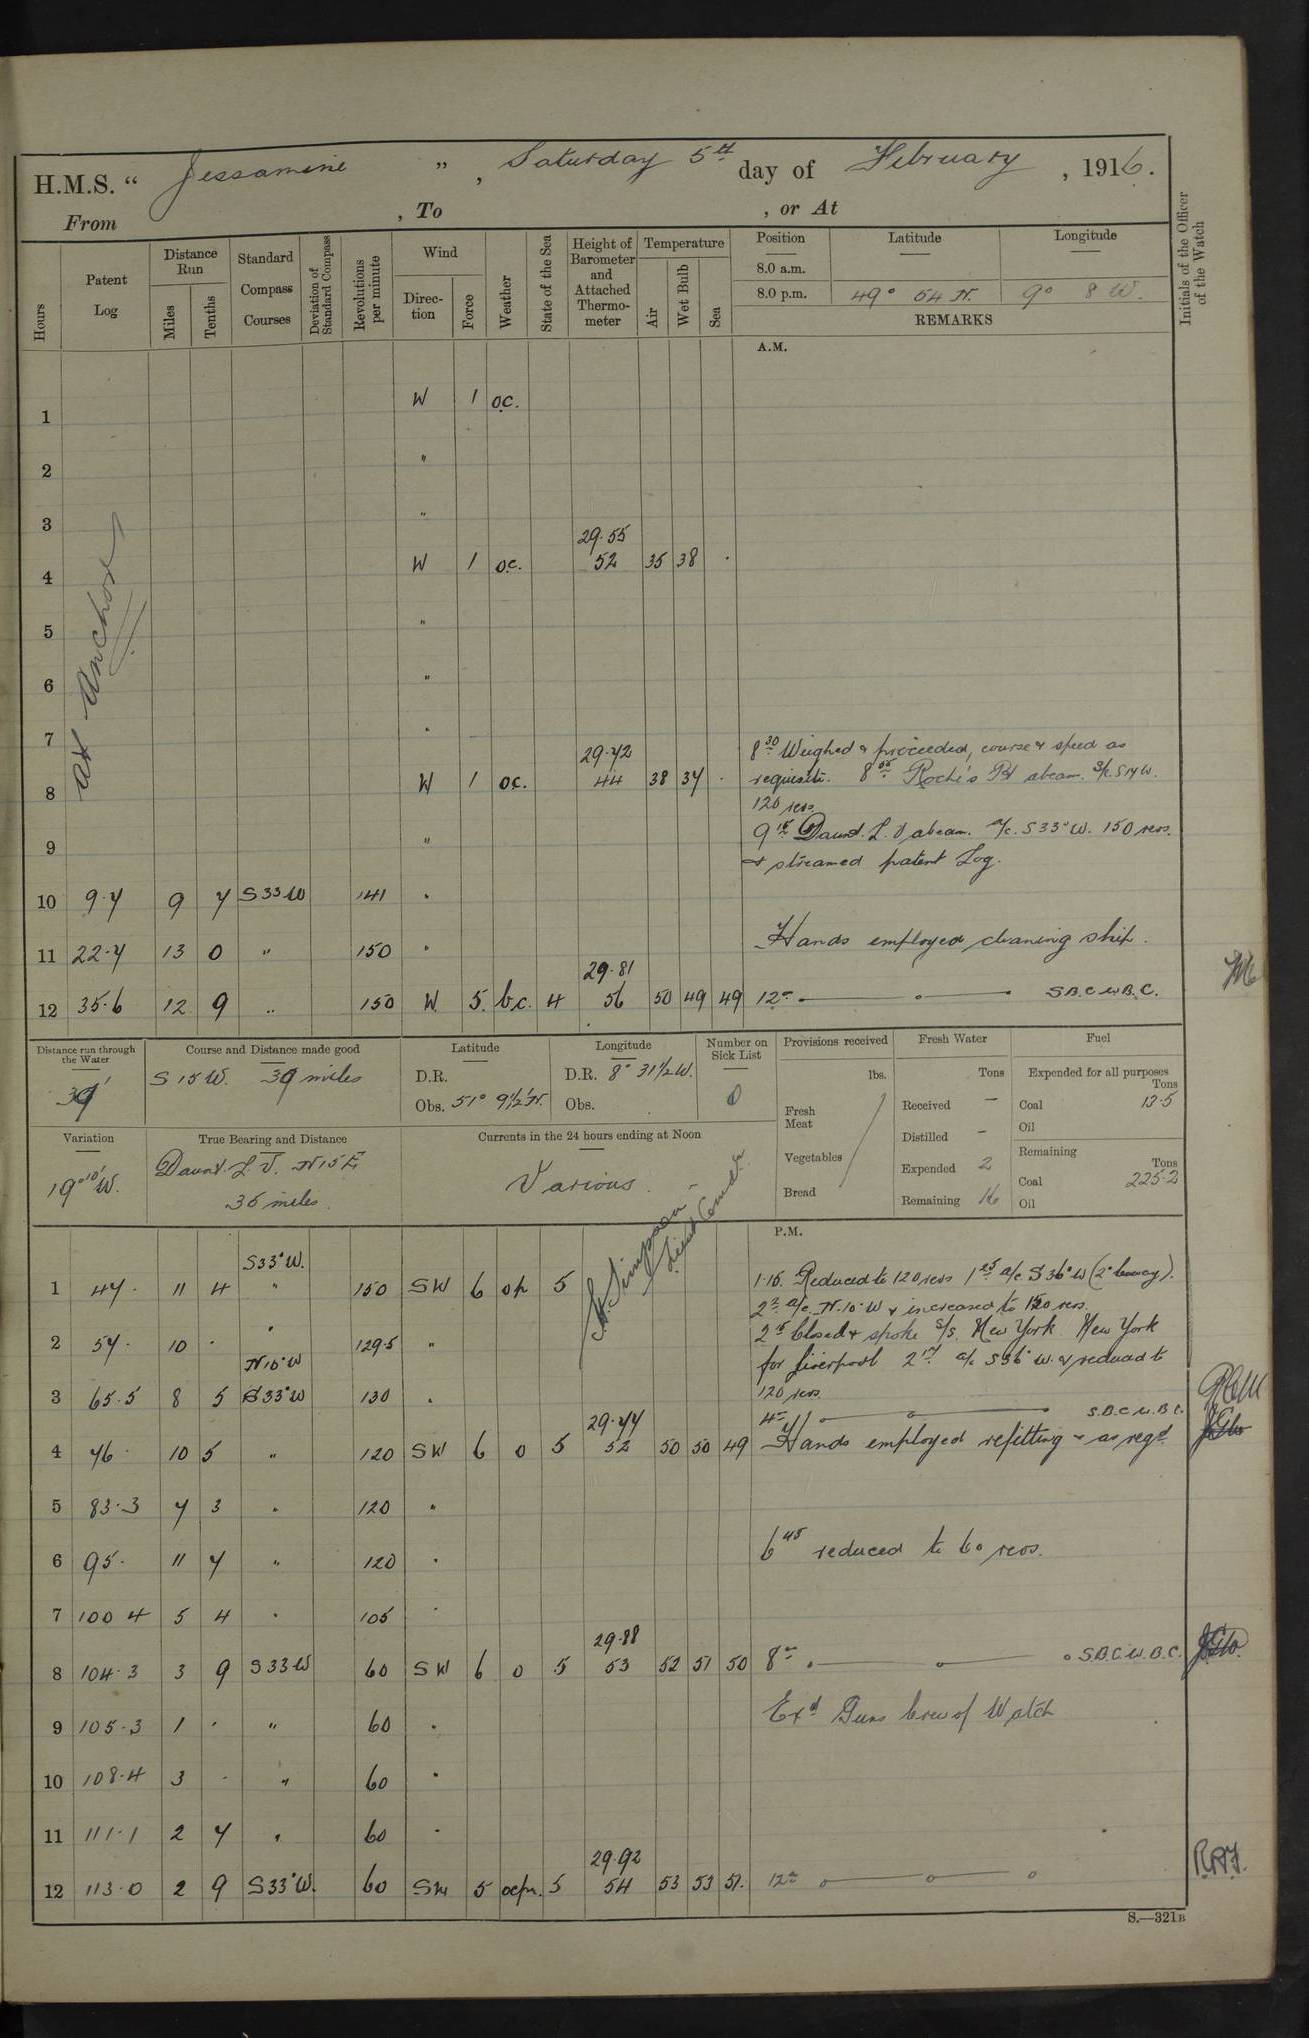 H.M.S. “ Jessamine ” , Saturday 5th day of February , 1916.
From , To , or At
Hours
Patent Log
Distance Run
Miles
Tenths
Standard Compass Courses
Deviation of Standard Compass
Revolutions per minute
Wind
Direction
Force
Weather
State of the Sea
Height of Barometer and Attached Thermometer
Temperature
Air
Wet Bulb
Sea
Position Latitude Longitude
8.0 a.m.
8.0 p.m. 49° 54 N. 9° 8 W.
REMARKS
Initials of the Officer of the Watch
A.M.
At Anchor
1 W 1 oc.
2 "
3 "
29.55
4 W 1 oc. 52 35 38
5 "
6 "
7 "
29.72
8 W 1 oc. 44 38 37
8 30 Weighed & proceeded, course & speed as
requisite. Roche's Pt abeam.
120 revs
9 15 Daunt. L.V abeam. a/c. S33°W. 150 revs.
& streamed patent Log.
9 "
10 9.7 9 7 S33W 141 "
11 22.7 13 0 " 150 "
Hands employed cleaning ship.
29.81
12 35.6 12 9 " 150 W. 5. b.c. 4 56 50 49 49 12 — S.B.C.W.B.C.
Distance run through the Water
39'
Course and Distance made good
S 15 W. 39 miles
Latitude
D.R.
Obs. 51° 9½ N.
Longitude
D.R. 8° 31½ W.
Obs.
Number on Sick List
0
Provisions received
lbs.
Fresh Meat
Vegetables
Bread
Fresh Water
Tons
Received —
Distilled —
Expended 2
Remaining 16
Fuel
Expended for all purposes
Tons
Coal 13.5
Oil
Remaining
Tons
Coal 225.2
Oil
Variation
19° 10' W.
True Bearing and Distance
Daunt. L.V. N15E
36 miles.
Currents in the 24 hours ending at Noon
Various.
Simpson
Lieut Comdr
P.M.
S33°W.
1 47. 11 4 " 150 SW 6 op 5
1.15. Reduced to 120 revs 1 25 a/c S36°W (2° leeway).
a/c. N.10°W & increased to 150 revs.
2 57. 10 . " 129.5 "
2 15 Closed & spoke S/S. New York. New York
for Liverpool a/c S36°W. & reduced to
120 revs.
N10°W
3 65.5 8 5 S33°W 130 "
4 — S.B.C.W.B.C.
29.77
4 76. 10 5 " 120 SW 6 o 5 52 50 50 49
Hands employed refitting & as reqd
5 83.3 7 3 " 120 "
6 95. 11 7 " 120 "
6 45 reduced to 60 revs.
7 100 4 5 4 " 105 "
29.88
8 104.3 3 9 S33W 60 SW 6 o 5 53 52 51 50 8 — S.B.C.W.B.C.
Exd Guns Crew of Watch
9 105.3 1 . " 60 "
10 108.4 3 . " 60 "
11 111.1 2 7 " 60 "
29.92
12 113.0 2 9 S33°W. 60 SW 5 54 53 53 51. 12
S.—321B